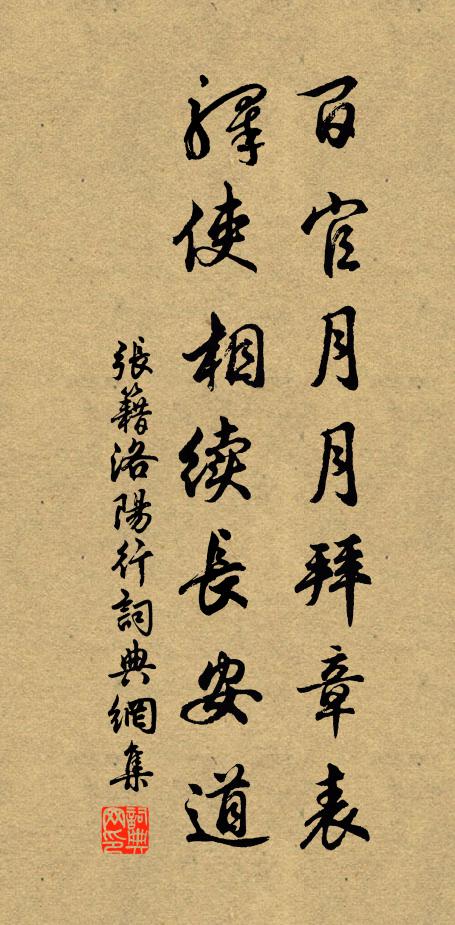 百官月月拜章表
驛使相續長安道
張籍洛陽行詞典網集
詞典网印